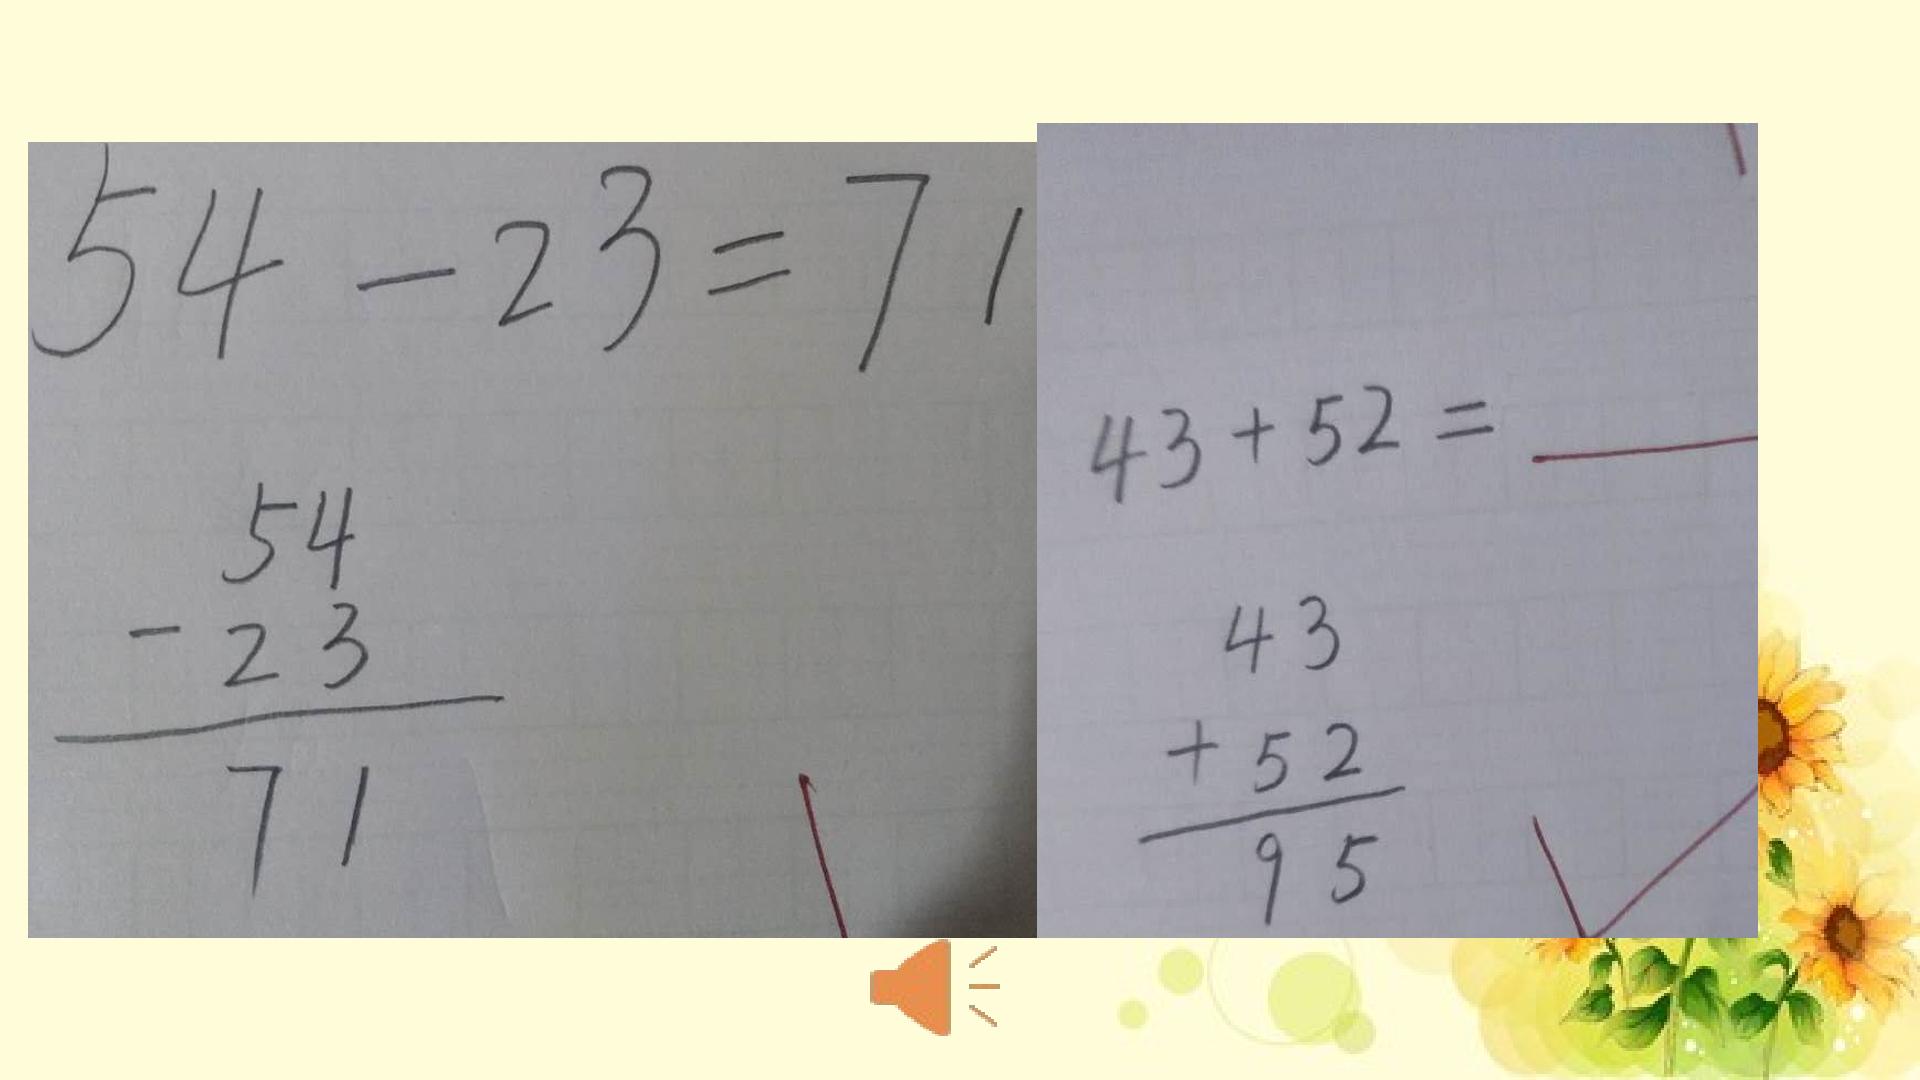 54 - 23 = 71
54
- 23
71
43 + 52 =
43
+ 52
95